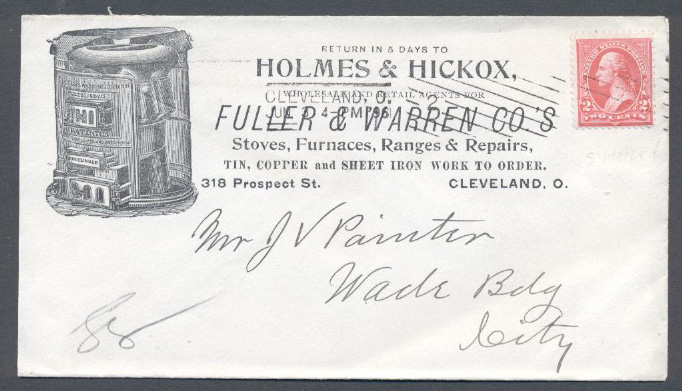 RETURN IN 5 DAYS TO
HOLMES & HICKOX,
WHOLESALE AND RETAIL AGENTS FOR
CLEVELAND, O.
JUN 3 4-PM '96
FULLER & WARREN CO.'S
Stoves, Furnaces, Ranges & Repairs,
TIN, COPPER and SHEET IRON WORK TO ORDER.
318 Prospect St. CLEVELAND, O.
2 2
TWO CENTS
Mr J V Painter
Wade Bdg
City